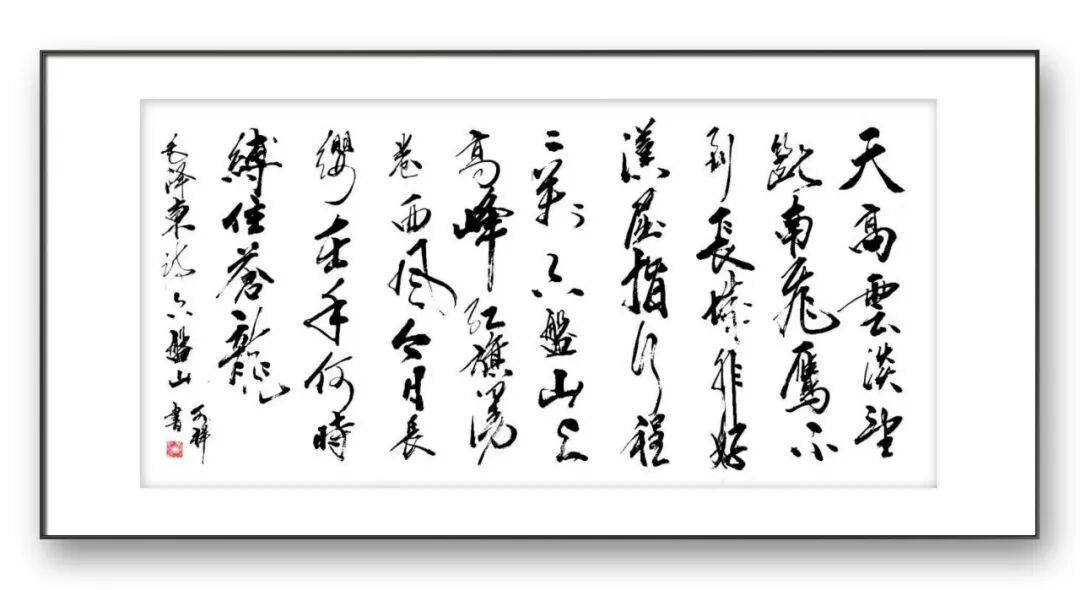 天高雲淡望
斷南飛鴈不
到長城非好
漢屈指行程
二萬〻六盤山上
高峰紅旗漫
卷西風今日長
纓在手何時
縛住蒼龍
毛澤東詞六盤山
書